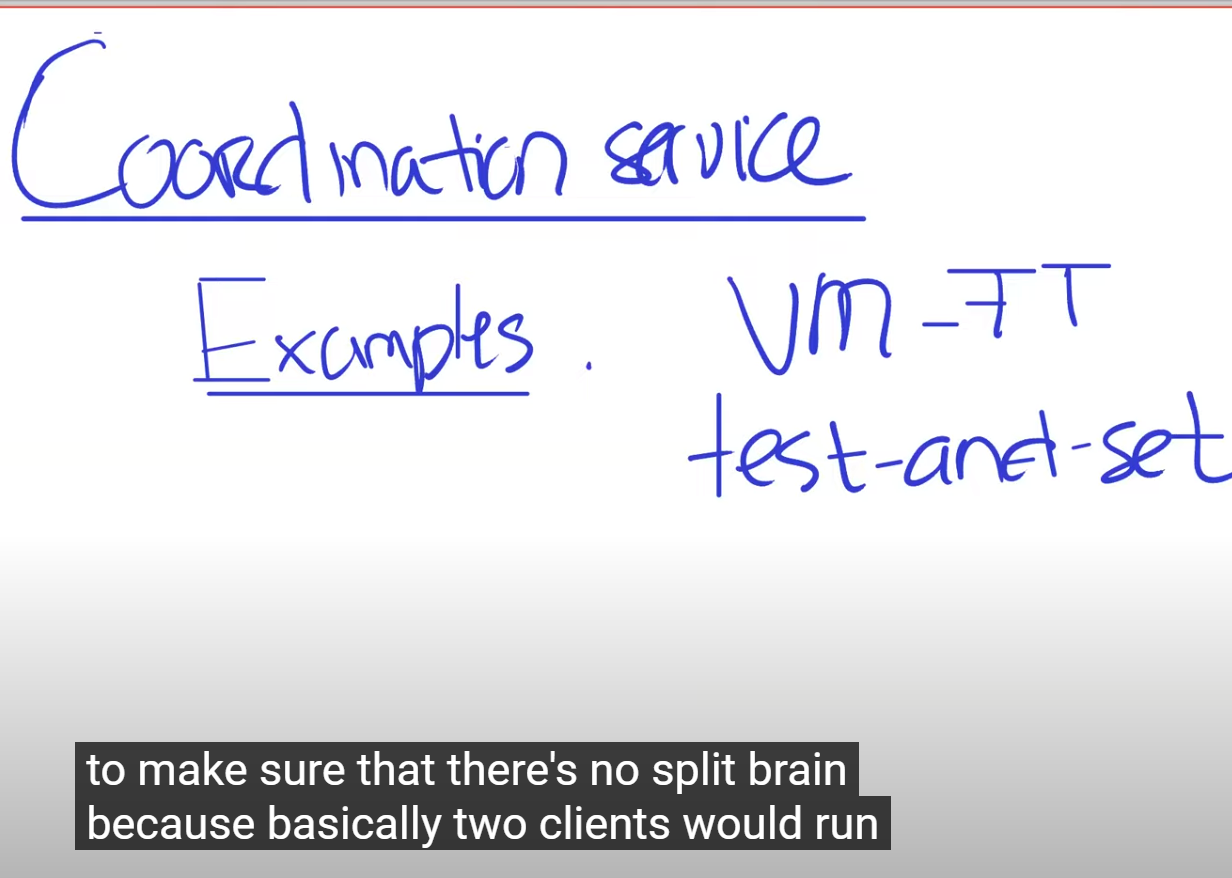 Coordination service
Examples. VM-FT
test-and-set
to make sure that there's no split brain
because basically two clients would run